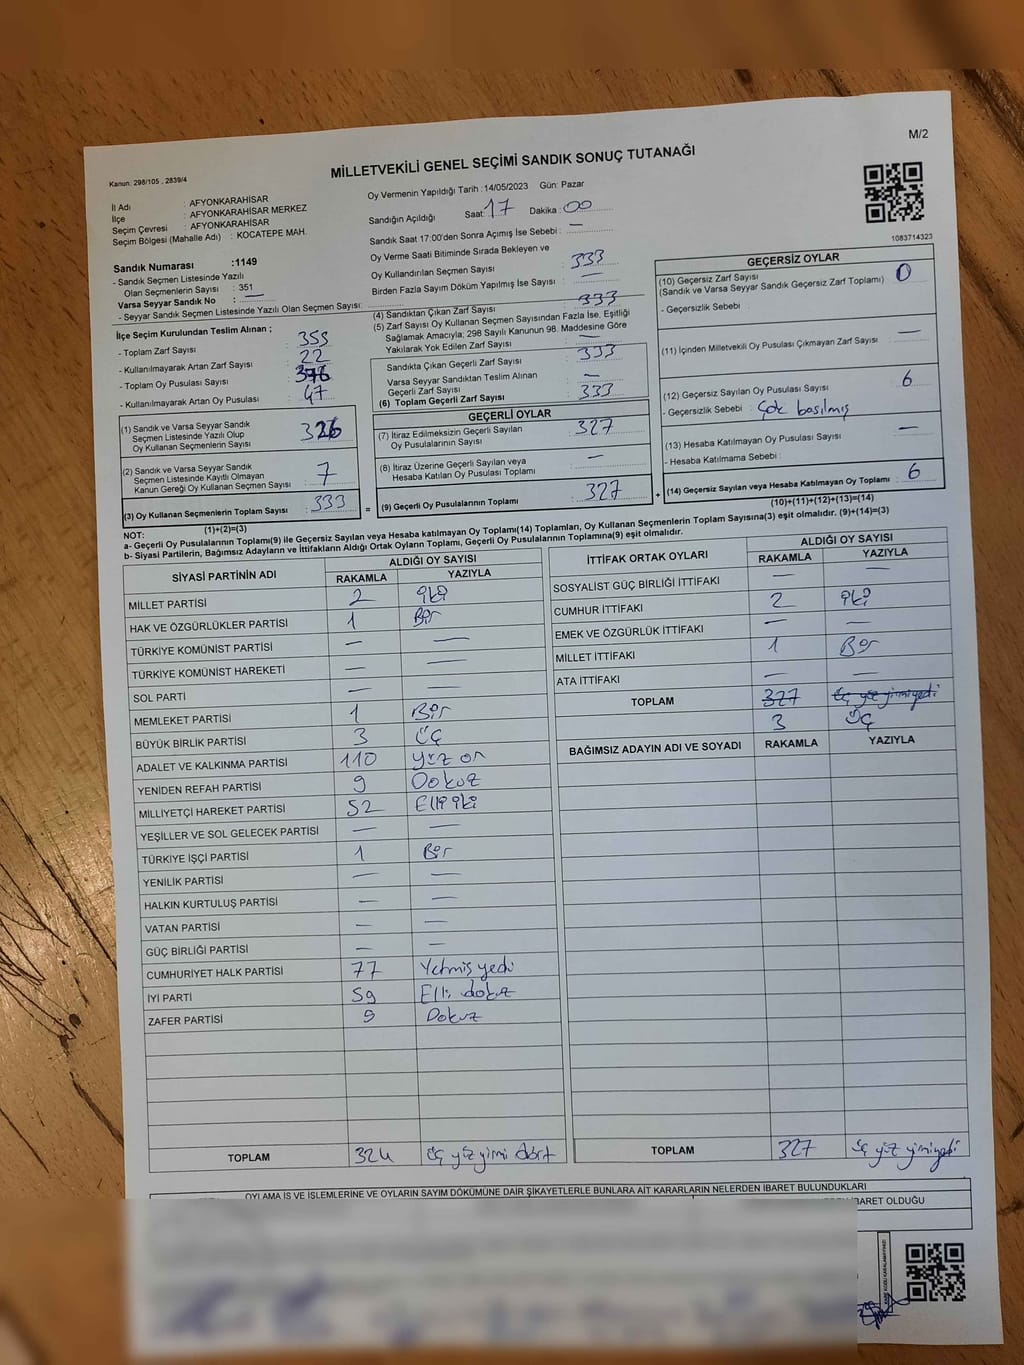 M/2
Kanun: 298/105 , 2839/4
MİLLETVEKİLİ GENEL SEÇİMİ SANDIK SONUÇ TUTANAĞI
İl Adı : AFYONKARAHİSAR
İlçe : AFYONKARAHİSAR MERKEZ
Seçim Çevresi : AFYONKARAHİSAR
Seçim Bölgesi (Mahalle Adı) : KOCATEPE MAH.
Sandık Numarası :1149
- Sandık Seçmen Listesinde Yazılı
Olan Seçmenlerin Sayısı : 351
Varsa Seyyar Sandık No : —
- Seyyar Sandık Seçmen Listesinde Yazılı Olan Seçmen Sayısı:
Oy Vermenin Yapıldığı Tarih :14/05/2023 Gün: Pazar
Sandığın Açıldığı Saat: 17 Dakika : 00
Sandık Saat 17:00'den Sonra Açımış İse Sebebi : —
Oy Verme Saati Bitiminde Sırada Bekleyen ve
Oy Kullandırılan Seçmen Sayısı : 333
Birden Fazla Sayım Döküm Yapılmış İse Sayısı : —
1083714323
İlçe Seçim Kurulundan Teslim Alınan ;
- Toplam Zarf Sayısı : 353
- Kullanılmayarak Artan Zarf Sayısı : 22
- Toplam Oy Pusulası Sayısı :
- Kullanılmayarak Artan Oy Pusulası : 47
(1) Sandık ve Varsa Seyyar Sandık
Seçmen Listesinde Yazılı Olup
Oy Kullanan Seçmenlerin Sayısı : 326
(2) Sandık ve Varsa Seyyar Sandık
Seçmen Listesinde Kayıtlı Olmayan
Kanun Gereği Oy Kullanan Seçmen Sayısı : 7
(3) Oy Kullanan Seçmenlerin Toplam Sayısı : 333
(1)+(2)=(3)
(4) Sandıktan Çıkan Zarf Sayısı : 333
(5) Zarf Sayısı Oy Kullanan Seçmen Sayısından Fazla İse, Eşitliği
Sağlamak Amacıyla; 298 Sayılı Kanunun 98. Maddesine Göre
Yakılarak Yok Edilen Zarf Sayısı :
Sandıkta Çıkan Geçerli Zarf Sayısı : 333
Varsa Seyyar Sandıktan Teslim Alınan
Geçerli Zarf Sayısı : —
(6) Toplam Geçerli Zarf Sayısı : 333
GEÇERLİ OYLAR
(7) İtiraz Edilmeksizin Geçerli Sayılan
Oy Pusulalarının Sayısı : 327
(8) İtiraz Üzerine Geçerli Sayılan veya
Hesaba Katılan Oy Pusulası Toplamı : —
= (9) Geçerli Oy Pusulalarının Toplamı : 327 +
GEÇERSİZ OYLAR
(10) Geçersiz Zarf Sayısı : 0
(Sandık ve Varsa Seyyar Sandık Geçersiz Zarf Toplamı)
- Geçersizlik Sebebi :
(11) İçinden Milletvekili Oy Pusulası Çıkmayan Zarf Sayısı : —
(12) Geçersiz Sayılan Oy Pusulası Sayısı : 6
- Geçersizlik Sebebi : Çok basılmış
(13) Hesaba Katılmayan Oy Pusulası Sayısı : —
- Hesaba Katılmama Sebebi :
(14) Geçersiz Sayılan veya Hesaba Katılmayan Oy Toplamı : 6
(10)+(11)+(12)+(13)=(14)
NOT:
a- Geçerli Oy Pusulalarının Toplamı(9) ile Geçersiz Sayılan veya Hesaba katılmayan Oy Toplamı(14) Toplamları, Oy Kullanan Seçmenlerin Toplam Sayısına(3) eşit olmalıdır. (9)+(14)=(3)
b- Siyasi Partilerin, Bağımsız Adayların ve İttifakların Aldığı Ortak Oyların Toplamı, Geçerli Oy Pusulalarının Toplamına(9) eşit olmalıdır.
SİYASİ PARTİNİN ADI ALDIĞI OY SAYISI
RAKAMLA YAZIYLA
MİLLET PARTİSİ 2 iki
HAK VE ÖZGÜRLÜKLER PARTİSİ 1 Bir
TÜRKİYE KOMÜNİST PARTİSİ — —
TÜRKİYE KOMÜNİST HAREKETİ — —
SOL PARTİ — —
MEMLEKET PARTİSİ 1 Bir
BÜYÜK BİRLİK PARTİSİ 3 Üç
ADALET VE KALKINMA PARTİSİ 110 yüz on
YENİDEN REFAH PARTİSİ 9 Dokuz
MİLLİYETÇİ HAREKET PARTİSİ 52 Elli iki
YEŞİLLER VE SOL GELECEK PARTİSİ — —
TÜRKİYE İŞÇİ PARTİSİ 1 Bir
YENİLİK PARTİSİ — —
HALKIN KURTULUŞ PARTİSİ — —
VATAN PARTİSİ — —
GÜÇ BİRLİĞİ PARTİSİ — —
CUMHURİYET HALK PARTİSİ 77 Yetmiş yedi
İYİ PARTİ 59 Elli dokuz
ZAFER PARTİSİ 9 Dokuz
TOPLAM 324 üç yüz yirmi dört
İTTİFAK ORTAK OYLARI ALDIĞI OY SAYISI
RAKAMLA YAZIYLA
SOSYALİST GÜÇ BİRLİĞİ İTTİFAKI — —
CUMHUR İTTİFAKI 2 iki
EMEK VE ÖZGÜRLÜK İTTİFAKI — —
MİLLET İTTİFAKI 1 Bir
ATA İTTİFAKI — —
TOPLAM 327 üç yüz yirmi yedi
3 Üç
BAĞIMSIZ ADAYIN ADI VE SOYADI RAKAMLA YAZIYLA
TOPLAM 327 üç yüz yirmi yedi
OYLAMA İŞ VE İŞLEMLERİNE VE OYLARIN SAYIM DÖKÜMÜNE DAİR ŞİKAYETLERLE BUNLARA AİT KARARLARIN NELERDEN İBARET BULUNDUKLARI
İBARET OLDUĞU